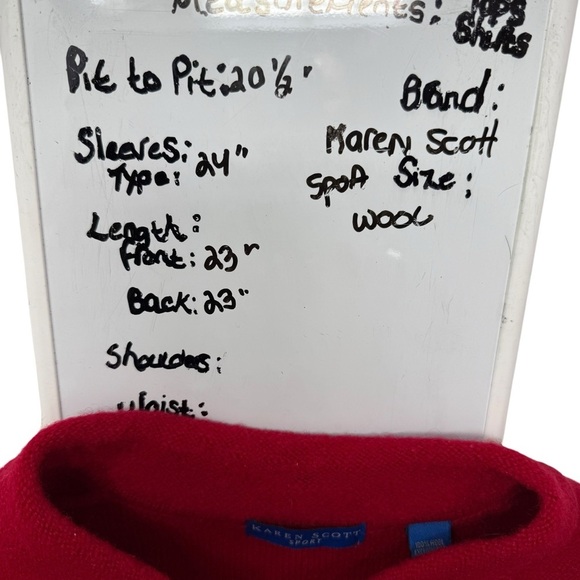 Measurements: Tops
Shirts
Pit to Pit: 20 1/2"
Brand:
Sleeves: 24"
Type:
Karen Scott
Sport Size:
Wool
Length:
Front: 23"
Back: 23"
Shoulders:
Waist:
KAREN SCOTT
SPORT
100% WOOL